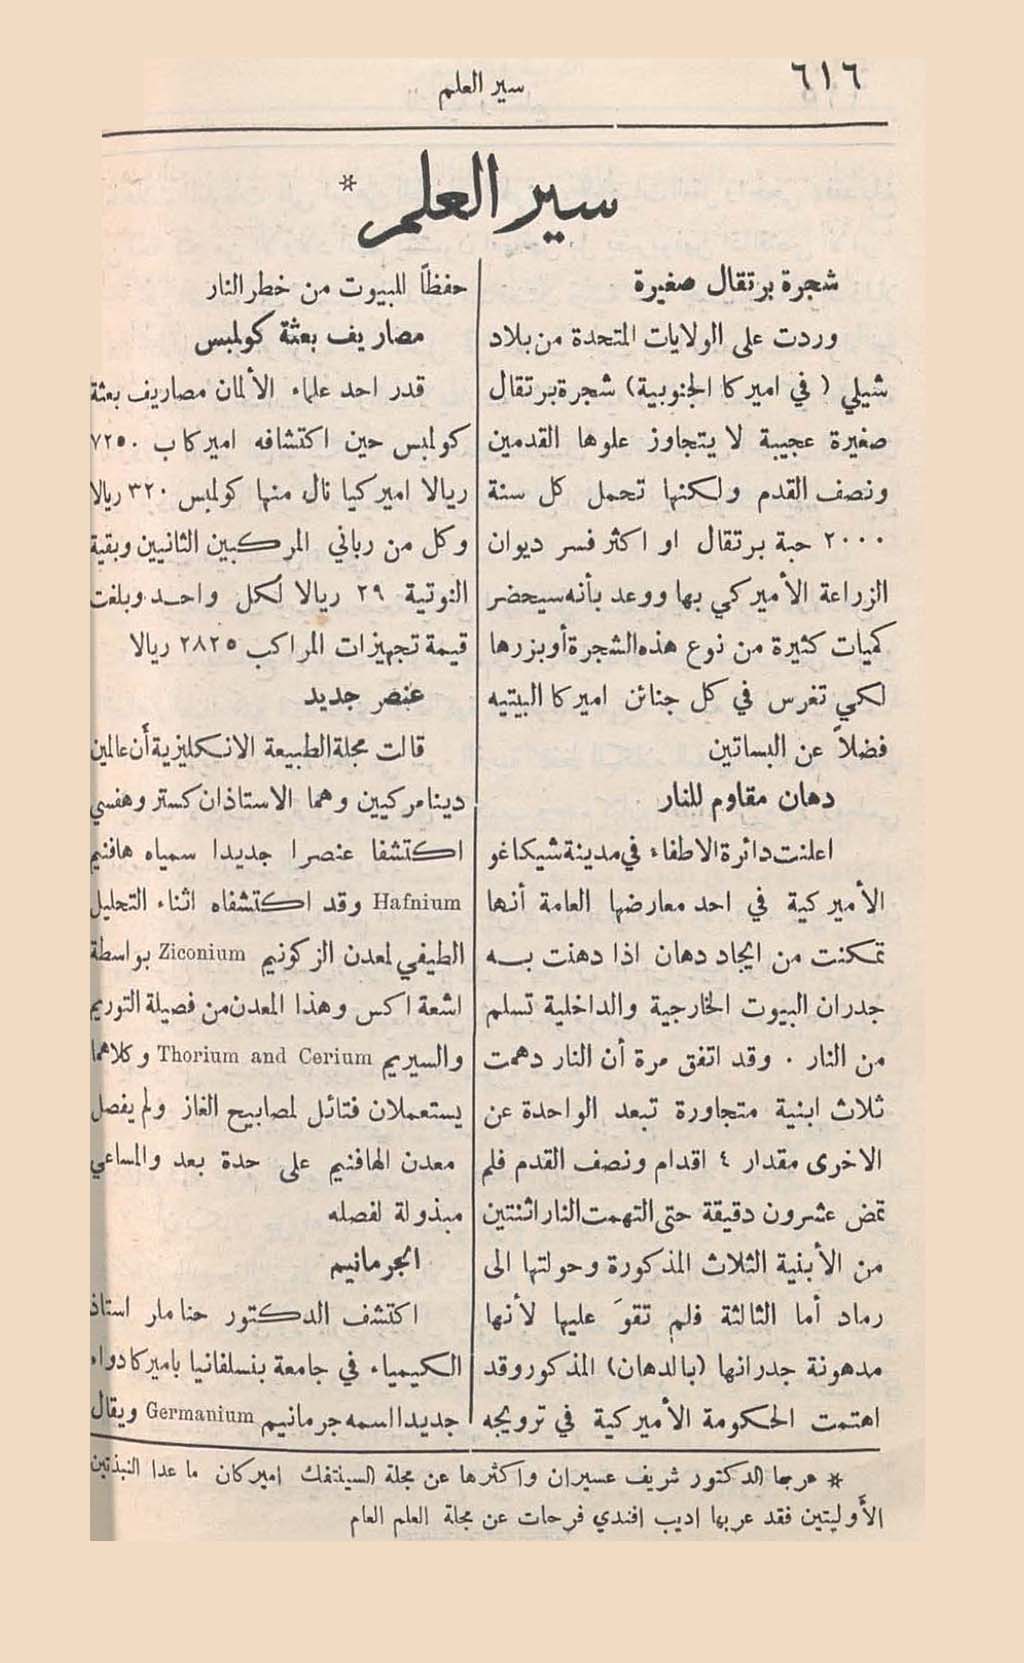 ٦١٦
سير العلم
سير العلم *
شجرة برتقال صغيرة
وردت على الولايات المتحدة من بلاد
شيلي ( في اميركا الجنوبية) شجرة برتقال
صغيرة عجيبة لا يتجاوز علوها القدمين
ونصف القدم ولكنها تحمل كل سنة
٢٠٠٠ حبة برتقال او اكثر فسر ديوان
الزراعة الأميركي بها ووعد بأنه سيحضر
كميات كثيرة من نوع هذه الشجرة أو بزرها
لكي تغرس في كل جنائن اميركا البيتيه
فضلاً عن البساتين
دهان مقاوم للنار
اعلنت دائرة الاطفاء في مدينة شيكاغو
الأميركية في احد معارضها العامة أنها
تمكنت من ايجاد دهان اذا دهنت به
جدران البيوت الخارجية والداخلية تسلم
من النار . وقد اتفق مرة أن النار دهمت
ثلاث ابنية متجاورة تبعد الواحدة عن
الاخرى مقدار ٤ اقدام ونصف القدم فلم
تمض عشرون دقيقة حتى التهمت النار اثنتين
من الأبنية الثلاث المذكورة وحولتها الى
رماد أما الثالثة فلم تقوَ عليها لأنها
مدهونة جدرانها (بالدهان) المذكور وقد
اهتمت الحكومة الأميركية في ترويجه
حفظاً للبيوت من خطر النار
مصاريف بعثة كولمبس
قدر احد علماء الألمان مصاريف بعثة
كولمبس حين اكتشافه اميركا ب ٧٢٥٠
ريالا اميركيا نال منها كولمبس ٣٢٠ ريالا
وكل من رباني المركبين الثانيين وبقية
النوتية ٢٩ ريالا لكل واحد وبلغت
قيمة تجهيزات المراكب ٢٨٢٥ ريالا
عنصر جديد
قالت مجلة الطبيعة الانكليزية أن عالمين
دينامركيين وهما الاستاذان كستر وهفسي
اكتشفا عنصرا جديدا سمياه هافنيم
Hafnium وقد اكتشفاه اثناء التحليل
الطيفي لمعدن الزكونيم Ziconium بواسطة
اشعة اكس وهذا المعدن من فصيلة التوريم
والسيريم Thorium and Cerium وكلاهما
يستعملان فتائل لمصابيح الغاز ولم يفصل
معدن الهافنيم على حدة بعد والمساعي
مبذولة لفصله
الجرمانيم
اكتشف الدكتور حنا مار استاذ
الكيمياء في جامعة بنسلفانيا باميركا دواء
جديدا اسمه جرمانيم Germanium ويقال
* عربها الدكتور شريف عسيران واكثرها عن مجلة السينتفك اميركان ما عدا النبذتين
الأوليتين فقد عربها اديب افندي فرحات عن مجلة العلم العام